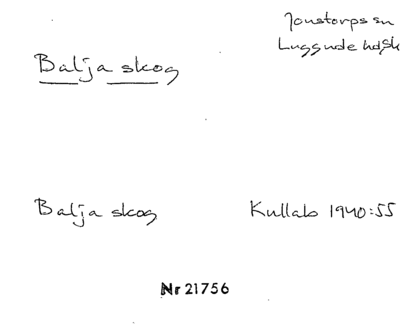 Jonstorps sn
Luggude hdsk
Balja skog
Balja skog Kullab 1940:55
Nr 21756